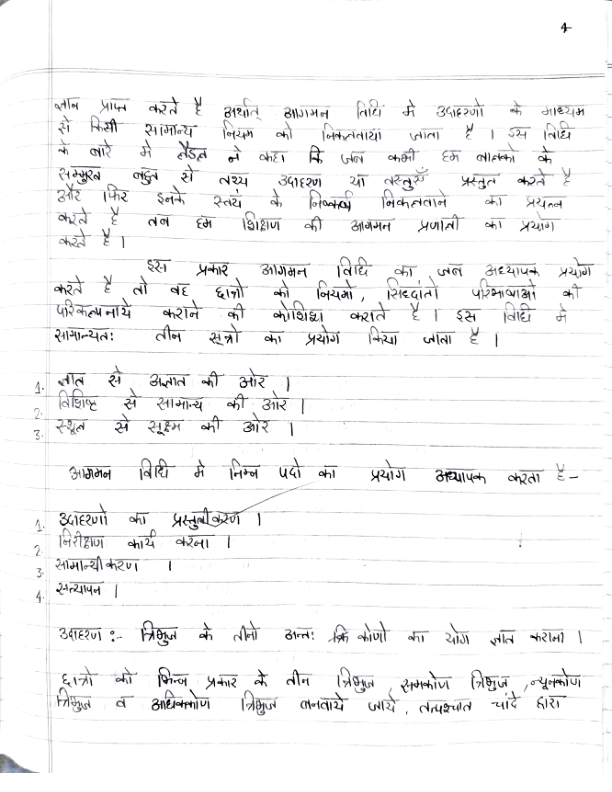 4
ज्ञान प्राप्त करते है अर्थात् आगमन विधि मे उदाहरणो के माध्यम
से किसी सामान्य नियम को निकलवाया जाता है । इस विधि
के बारे मे लैंडल ने कहा कि जब कभी हम बालको के
सम्मुख बहुत से तथ्य उदाहरण या वस्तुएँ प्रस्तुत करते है
और फिर इनके स्वयं के निष्कर्ष निकलवाने का प्रयत्न
करते है तब हम शिक्षण की आगमन प्रणाली का प्रयोग
करते है ।
इस प्रकार आगमन विधि का जब अध्यापक प्रयोग
करते है तो वह छात्रो को नियमो, सिद्धांतो परिभाषाओं की
परिकल्पनाये कराने की कोशिश कराते है । इस विधि मे
सामान्यतः तीन सूत्रो का प्रयोग किया जाता है ।
1. ज्ञात से अज्ञात की ओर ।
2. विशिष्ट से सामान्य की ओर ।
3. स्थूल से सूक्ष्म की ओर ।
आगमन विधि मे निम्न पदो का प्रयोग अध्यापक करता है –
1. उदाहरणो का प्रस्तुतीकरण ।
2. निरीक्षण कार्य करना ।
3. सामान्यीकरण ।
4. सत्यापन ।
उदाहरण :- त्रिभुज के तीनो अन्तः कोणो का योग ज्ञात कराना ।
छात्रो को भिन्न प्रकार के तीन त्रिभुज, समकोण त्रिभुज, न्यूनकोण
त्रिभुज व अधिककोण त्रिभुज बनवाये जाये, तत्पश्चात चांदे द्वारा